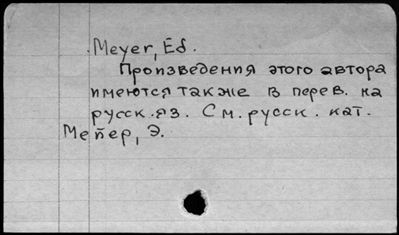 Meyer, Ed.
Произведения этого автора
имеются также в перев. на
русск. яз. См. русск. кат.
Мейер, Э.